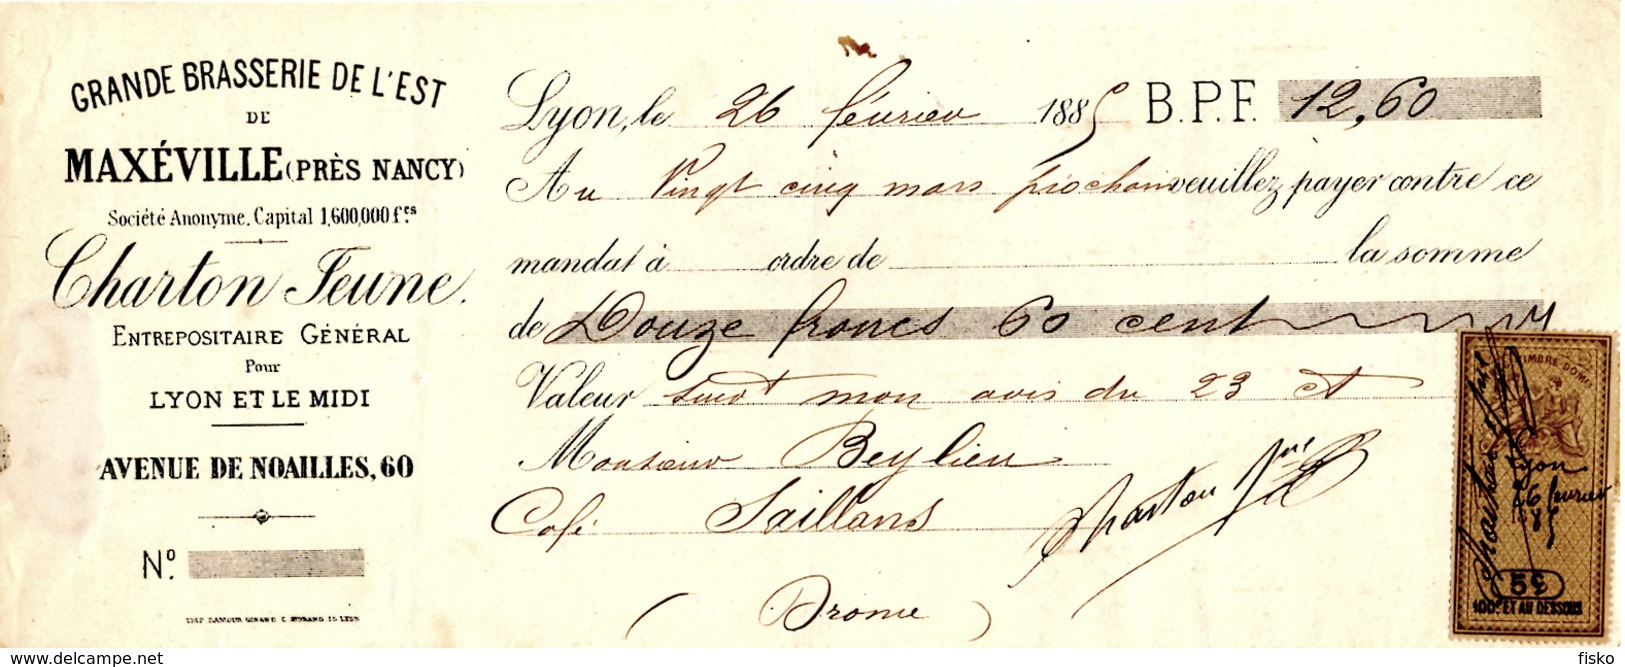 GRANDE BRASSERIE DE L'EST
DE
MAXÉVILLE (PRÈS NANCY)
Société Anonyme, Capital 1,600,000 f.cs
Charton Jeune.
ENTREPOSITAIRE GÉNÉRAL
Pour
LYON ET LE MIDI
AVENUE DE NOAILLES, 60
N°.
Lyon, le 26 février 1885 B.P.F. 12,60
Au Vingt cinq mars prochain veuillez payer contre ce
mandat à ordre de la somme
de Douze francs 60 cent
Valeur suivt mon avis du 23 ct
Monsieur Beylieu
Café Saillans
Charton Jne
(Drome)
TIMBRE DOM
Charton Jne
Lyon
26 février
1885
5c
100f ET AU DESSOUS
delcampe.net
fisko